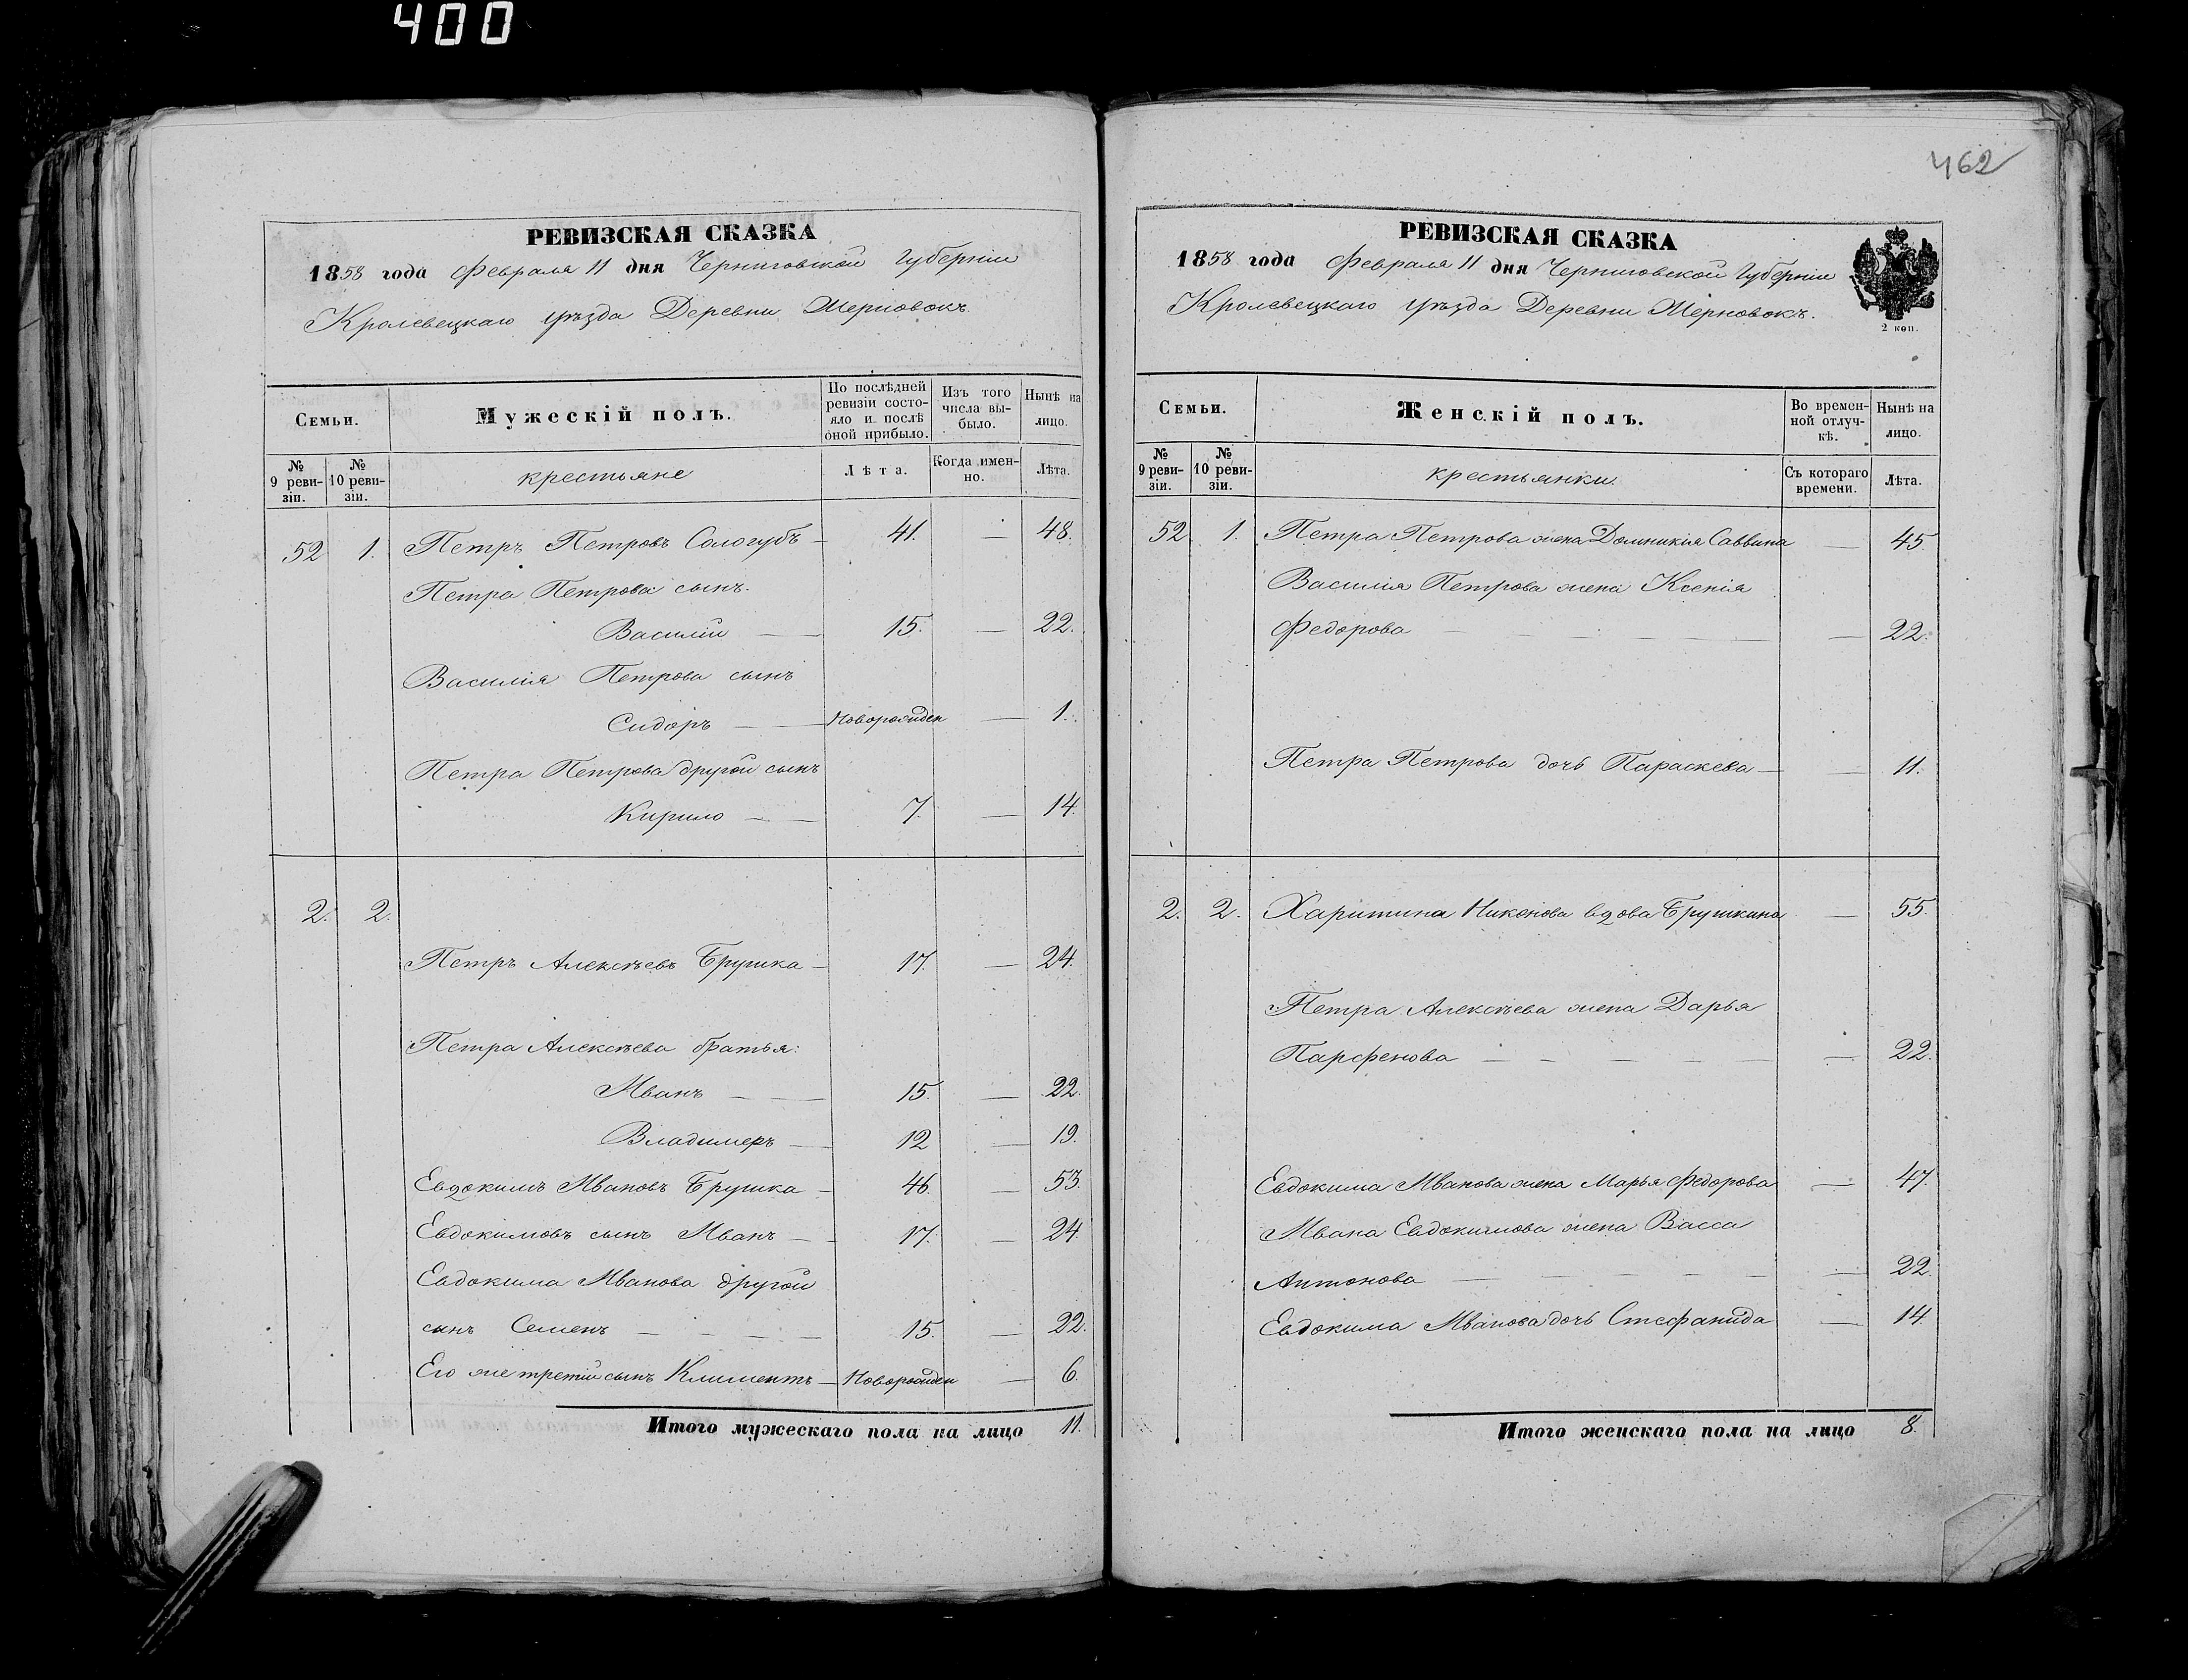 400
462
РЕВИЗСКАЯ СКАЗКА
1858 года Февраля 11 дня Черниговской Губерніи
Кролевецкаго уѣзда Деревни
Семьи.
Мужескій полъ.
По послѣдней ревизіи состояло и послѣ оной прибыло.
Изъ того числа выбыло.
Нынѣ на лицо.
№ 9 ревизіи.
№ 10 ревизіи.
крестьяне
Лѣта.
Когда именно.
Лѣта.
52 1. Петръ Петровъ Сологубъ — 41. — 48.
Петра Петрова сынъ.
Василій — — 15. — 22.
Василія Петрова сынъ
Сидоръ — — Новорожден — 1.
Петра Петрова другой сынъ
Кирило — — 7. — 14.
2. 2.
Петръ Алексѣевъ Брушка — 17. — 24.
Петра Алексѣева братья:
Иванъ — — 15. — 22.
Владимеръ — 12 — 19.
Евдокимъ Ивановъ Брушка — 46. — 53.
Евдокимовъ сынъ Иванъ — — 17. — 24.
Евдокима Иванова другой
сынъ Семенъ — — — — 15. — 22.
Его же третій сынъ Климентъ — Новорожден — 6.
Итого мужескаго пола на лицо 11.
РЕВИЗСКАЯ СКАЗКА
1858 года Февраля 11 дня Черниговской Губерніи
Кролевецкаго уѣзда Деревни
2 коп.
Семьи.
Женскій полъ.
Во временной отлучкѣ.
Нынѣ на лицо.
№ 9 ревизіи.
№ 10 ревизіи.
крестьянки.
Съ котораго времени.
Лѣта.
52 1. Петра Петрова жена Домникія Саввина — 45.
Василія Петрова жена Ксенія
Федорова — — — — — — 22.
Петра Петрова дочь Параскева — — 11.
2. 2. Харитина Никонова вдова Брушкина — 55.
Петра Алексѣева жена Дарья
Парфенова — — — — — — 22.
Евдокима Иванова жена Марья Федорова — 47.
Ивана Евдокимова жена Васса
Антонова — — — — — — 22.
Евдокима Иванова дочь Стефанида — 14.
Итого женскаго пола на лицо 8.